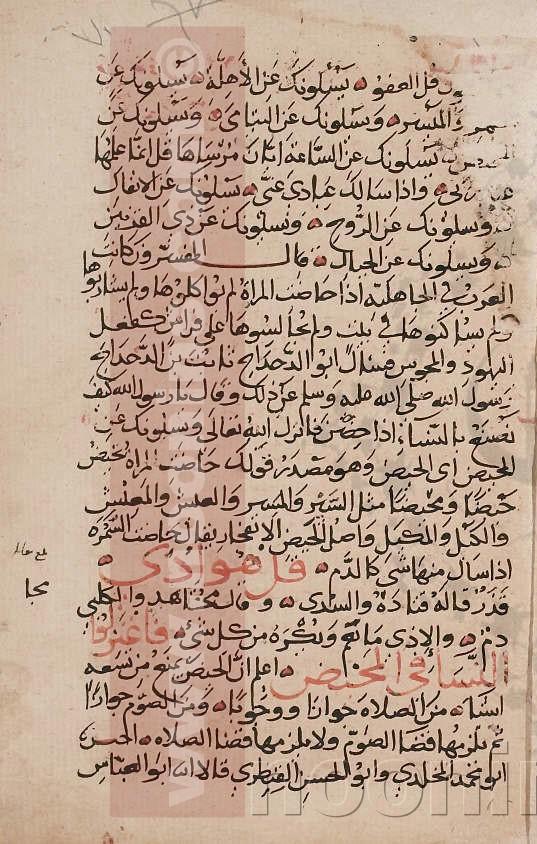 قل العفو يسلونك عن الأهلة يسلونك عن
والميسر ويسلونك عن اليتامى ويسلونك عن
المحيض يسلونك عن الساعة ايان مرساها قل انما علمها
عند ربي واذا سالك عبادي عني يسلونك عن الانفال
ويسلونك عن الروح ويسلونك عن ذي القرنين
ويسلونك عن الجبال قال المفسرون كانت
العرب في الجاهلية اذا حاضت المراة لم يواكلوها ولم يشاربوها
ولم يساكنوها في بيت ولم يجالسوها على فراش كفعل
اليهود والمجوس فسال ابو الدحداح ثابت بن الدحداح
رسول الله صلى الله عليه وسلم عن ذلك وقال يا رسول الله كيف
نصنع بالنساء اذا حضن فانزل الله تعالى ويسلونك عن
المحيض اى الحيض وهو مصدر قولك حاضت المراه تحيض
حيضا ومحيضا مثل السير والمسير والعيش والمعيش
والكيل والمكيل واصل الحيض الانفجار يقال حاضت السمره
اذا سال منها شى كالدم قل هو اذى
قذر قاله قتاده والسدي وقال مجاهد والكلبي
دم والاذى ما يغم ويكره من كل شى فاعتزلوا
النسا في المحيض اعلم ان الحيض يمنع من تسعه
اشيا من الصلاه جوازا ووجوبا ومن الصوم جوازا
ثم يلزمها قضا الصوم ولا يلزمها قضا الصلاه
ابو محمد المخلدي وابو الحسن القنطري قالا انا ابو العباس